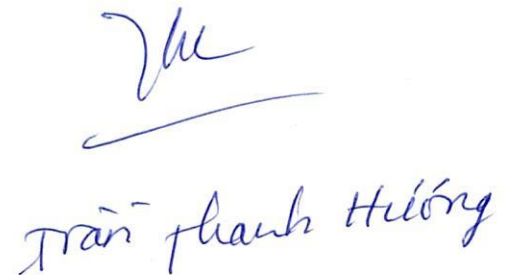 Trần Thanh Hương